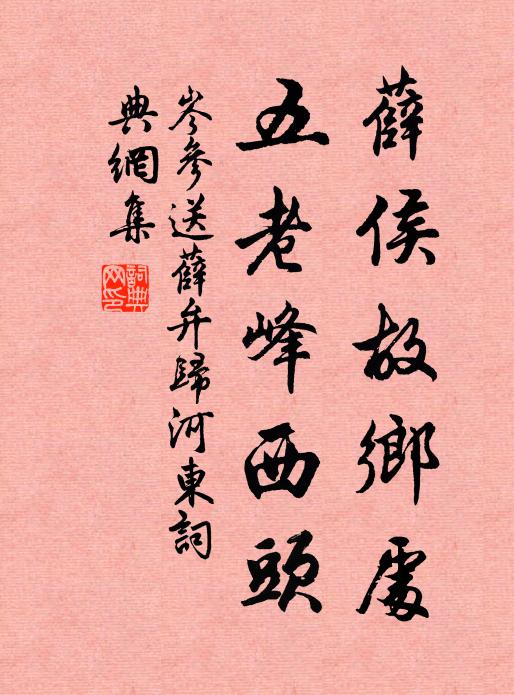 薛侯故鄉處
五老峰西頭
岑參送薛弁歸河東詞
典網集
詞典
网印